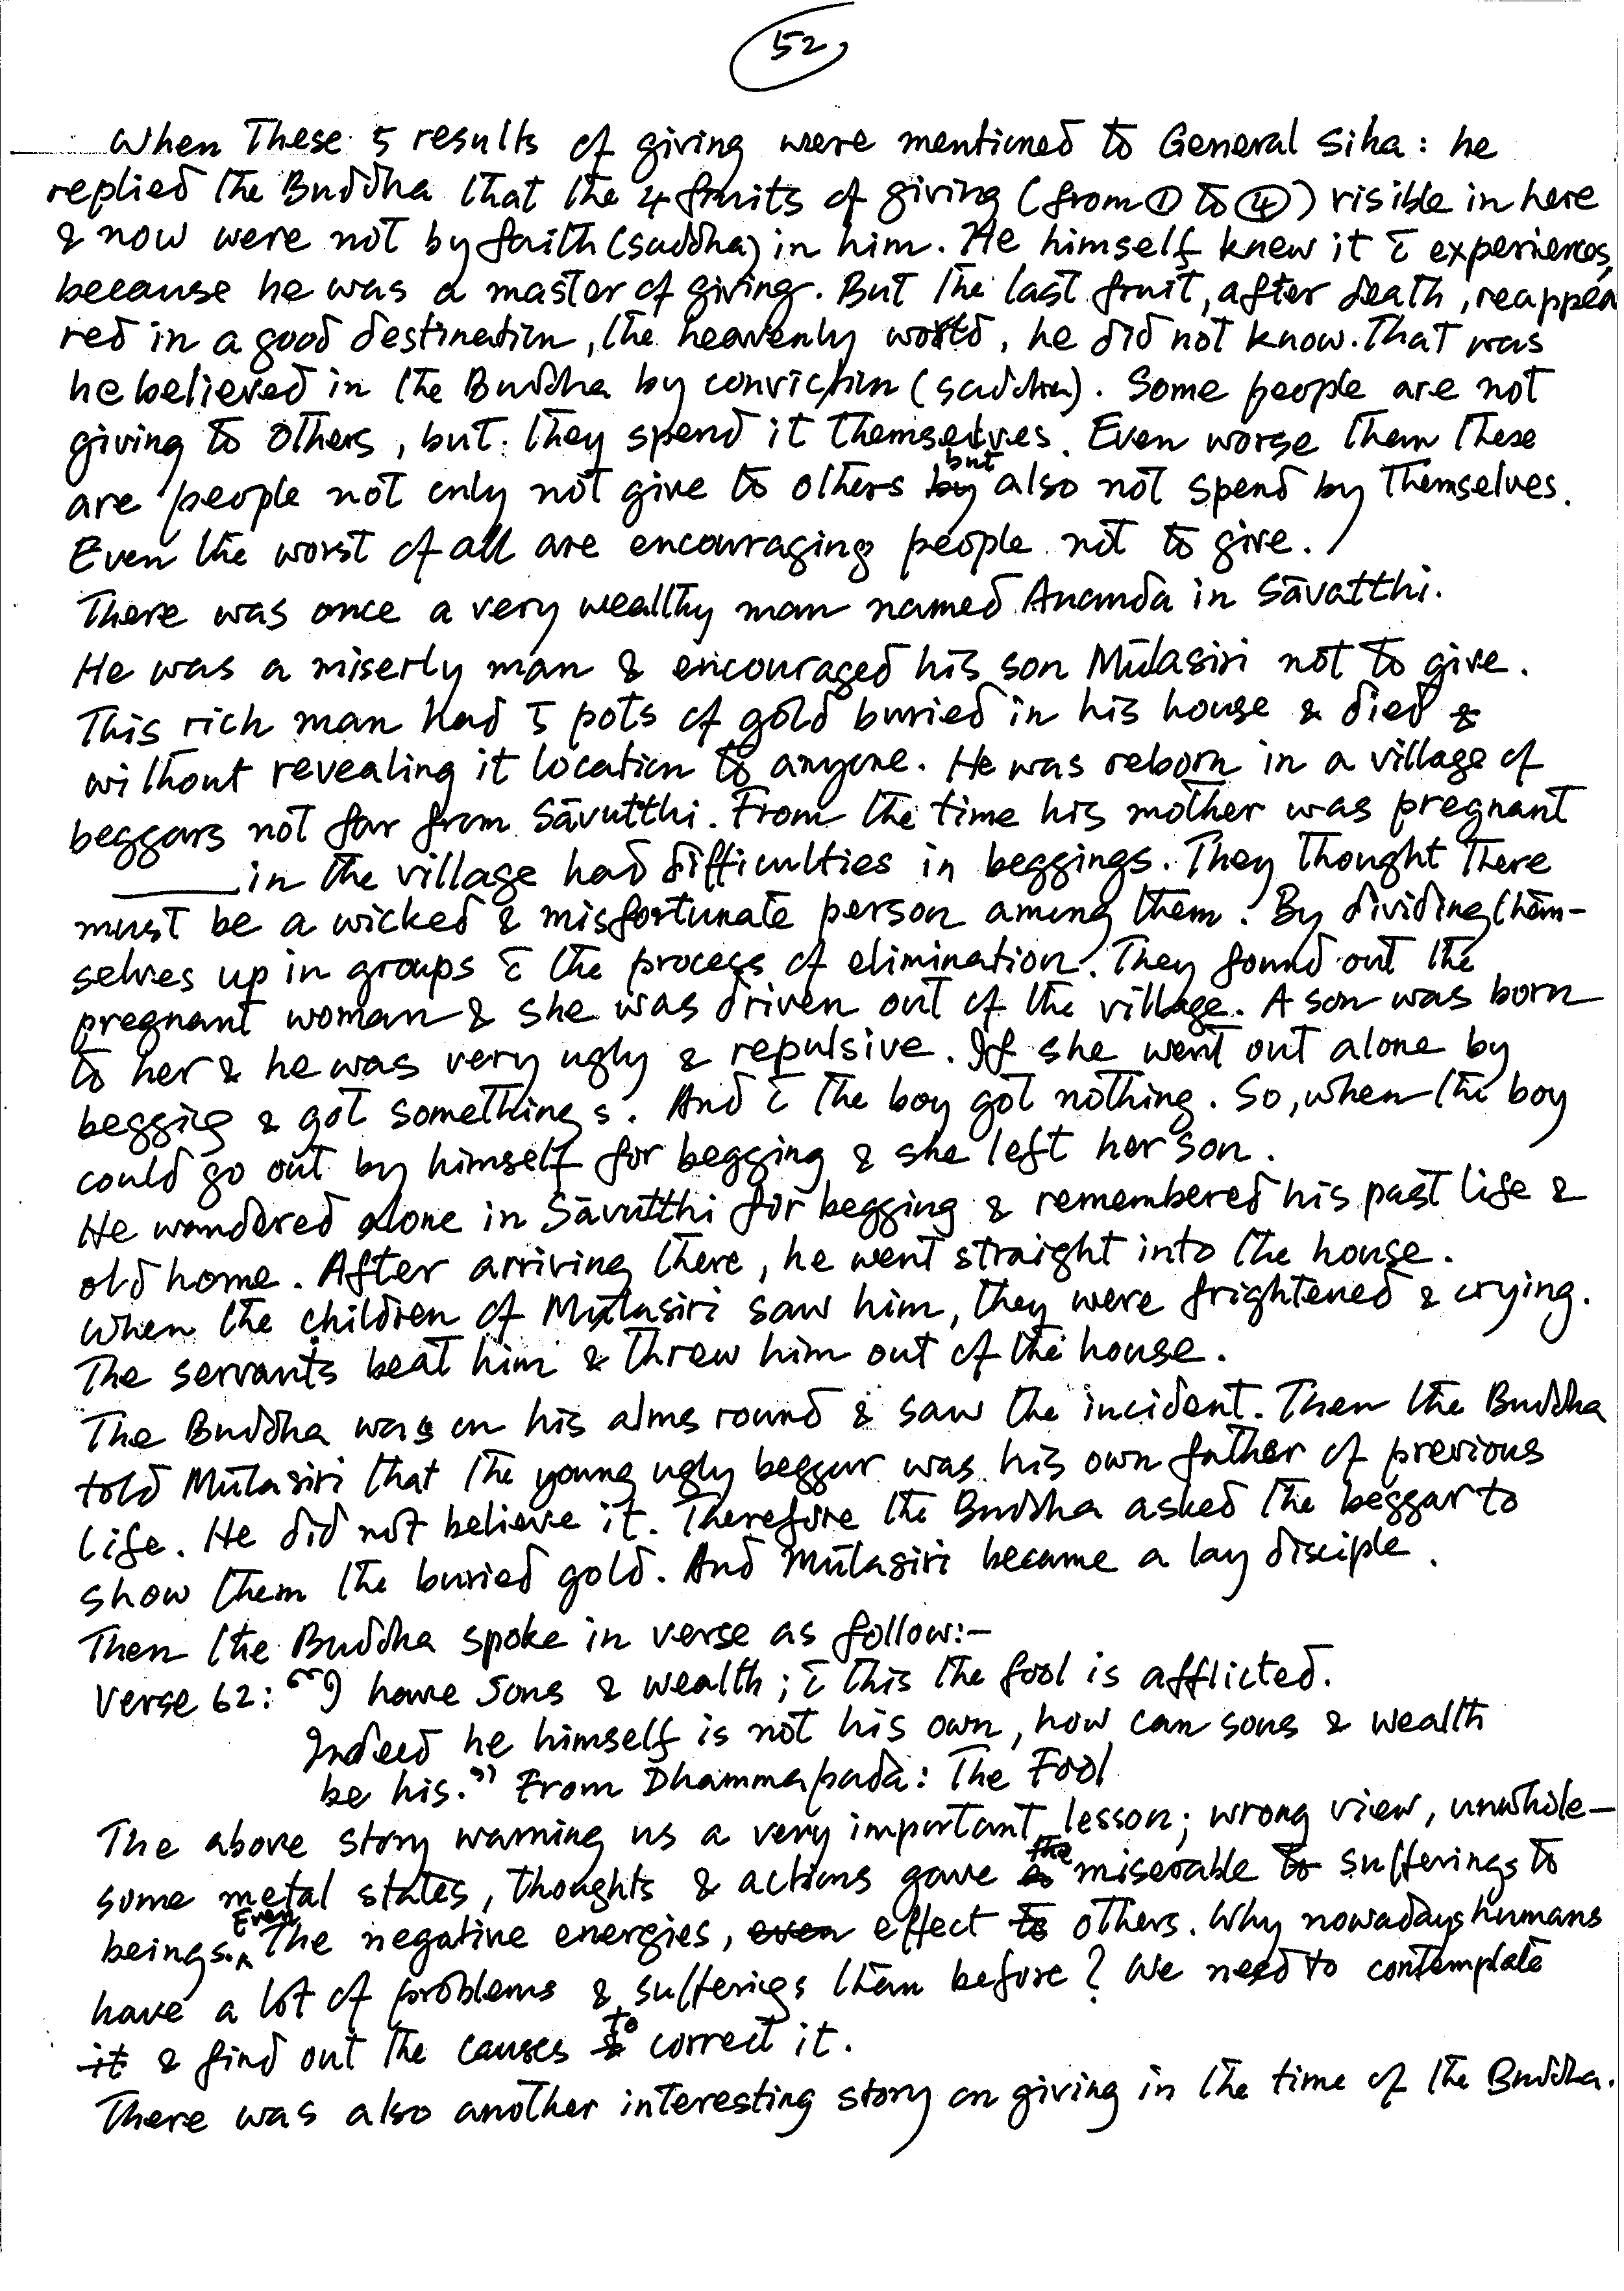 52
When These 5 results of giving were mentioned to General Siha: he
replied the Buddha that the 4 fruits of giving (from ① to ④) visible in here
& now were not by faith (saddha) in him. He himself knew it c̄ experiences,
because he was a master of giving. But the last fruit, after death, reappea
red in a good destination, the heavenly world, he did not know. That was
he believed in the Buddha by conviction (saddha). Some people are not
giving to others, but they spend it themselves. Even worse them these
are people not only not give to others but also not spend by themselves.
Even the worst of all are encouraging people not to give.
There was once a very wealthy man named Ananda in Sāvatthi.
He was a miserly man & encouraged his son Mūlasiri not to give.
This rich man had 5 pots of gold buried in his house & died &
without revealing it location to anyone. He was reborn in a village of
beggars not far from Sāvutthi. From the time his mother was pregnant
in the village had difficulties in beggings. They thought there
must be a wicked & misfortunate person among them. By dividing them-
selves up in groups c̄ the process of elimination. They found out the
pregnant woman & she was driven out of the village. A son was born
to her & he was very ugly & repulsive. If she went out alone by
begging & got somethings. And c̄ the boy got nothing. So, when the boy
could go out by himself for begging & she left her son.
He wandered alone in Sāvutthi for begging & remembered his past life &
old home. After arriving there, he went straight into the house.
When the children of Mūlasiri saw him, they were frightened & crying.
The servants beat him & threw him out of the house.
The Buddha was on his alms round & saw the incident. Then the Buddha
told Mūlasiri that the young ugly beggar was his own father of previous
life. He did not believe it. Therefore the Buddha asked the beggar to
show them the buried gold. And Mūlasiri became a lay disciple.
Then the Buddha spoke in verse as follow:-
Verse 62: "I have Sons & wealth; c̄ this the fool is afflicted.
Indeed he himself is not his own, how can sons & wealth
be his." From Dhammapada: The Fool
The above story warning us a very important lesson; wrong view, unwhole-
some metal states, thoughts & actions gave the miserable to sufferings to
beings. Even The negative energies, even effect to others. Why nowadays humans
have a lot of problems & sufferings than before? We need to contemplate
it & find out the causes to correct it.
There was also another interesting story on giving in the time of the Buddha.